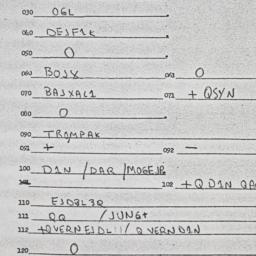 030 OGL
040 DEJF1K
050 O
060 BOJX 061 O
070 BAJXAL1 071 + QSYN
080 O
090 TROMPAK
091 + 092 –
100 D1N /DAR /MOGEJB
102 + Q D1N QA
110 EJDBL3Q
111 QQ /JUNG+
112 +QVERNEJDL11/ Q VERN D1N
120 O